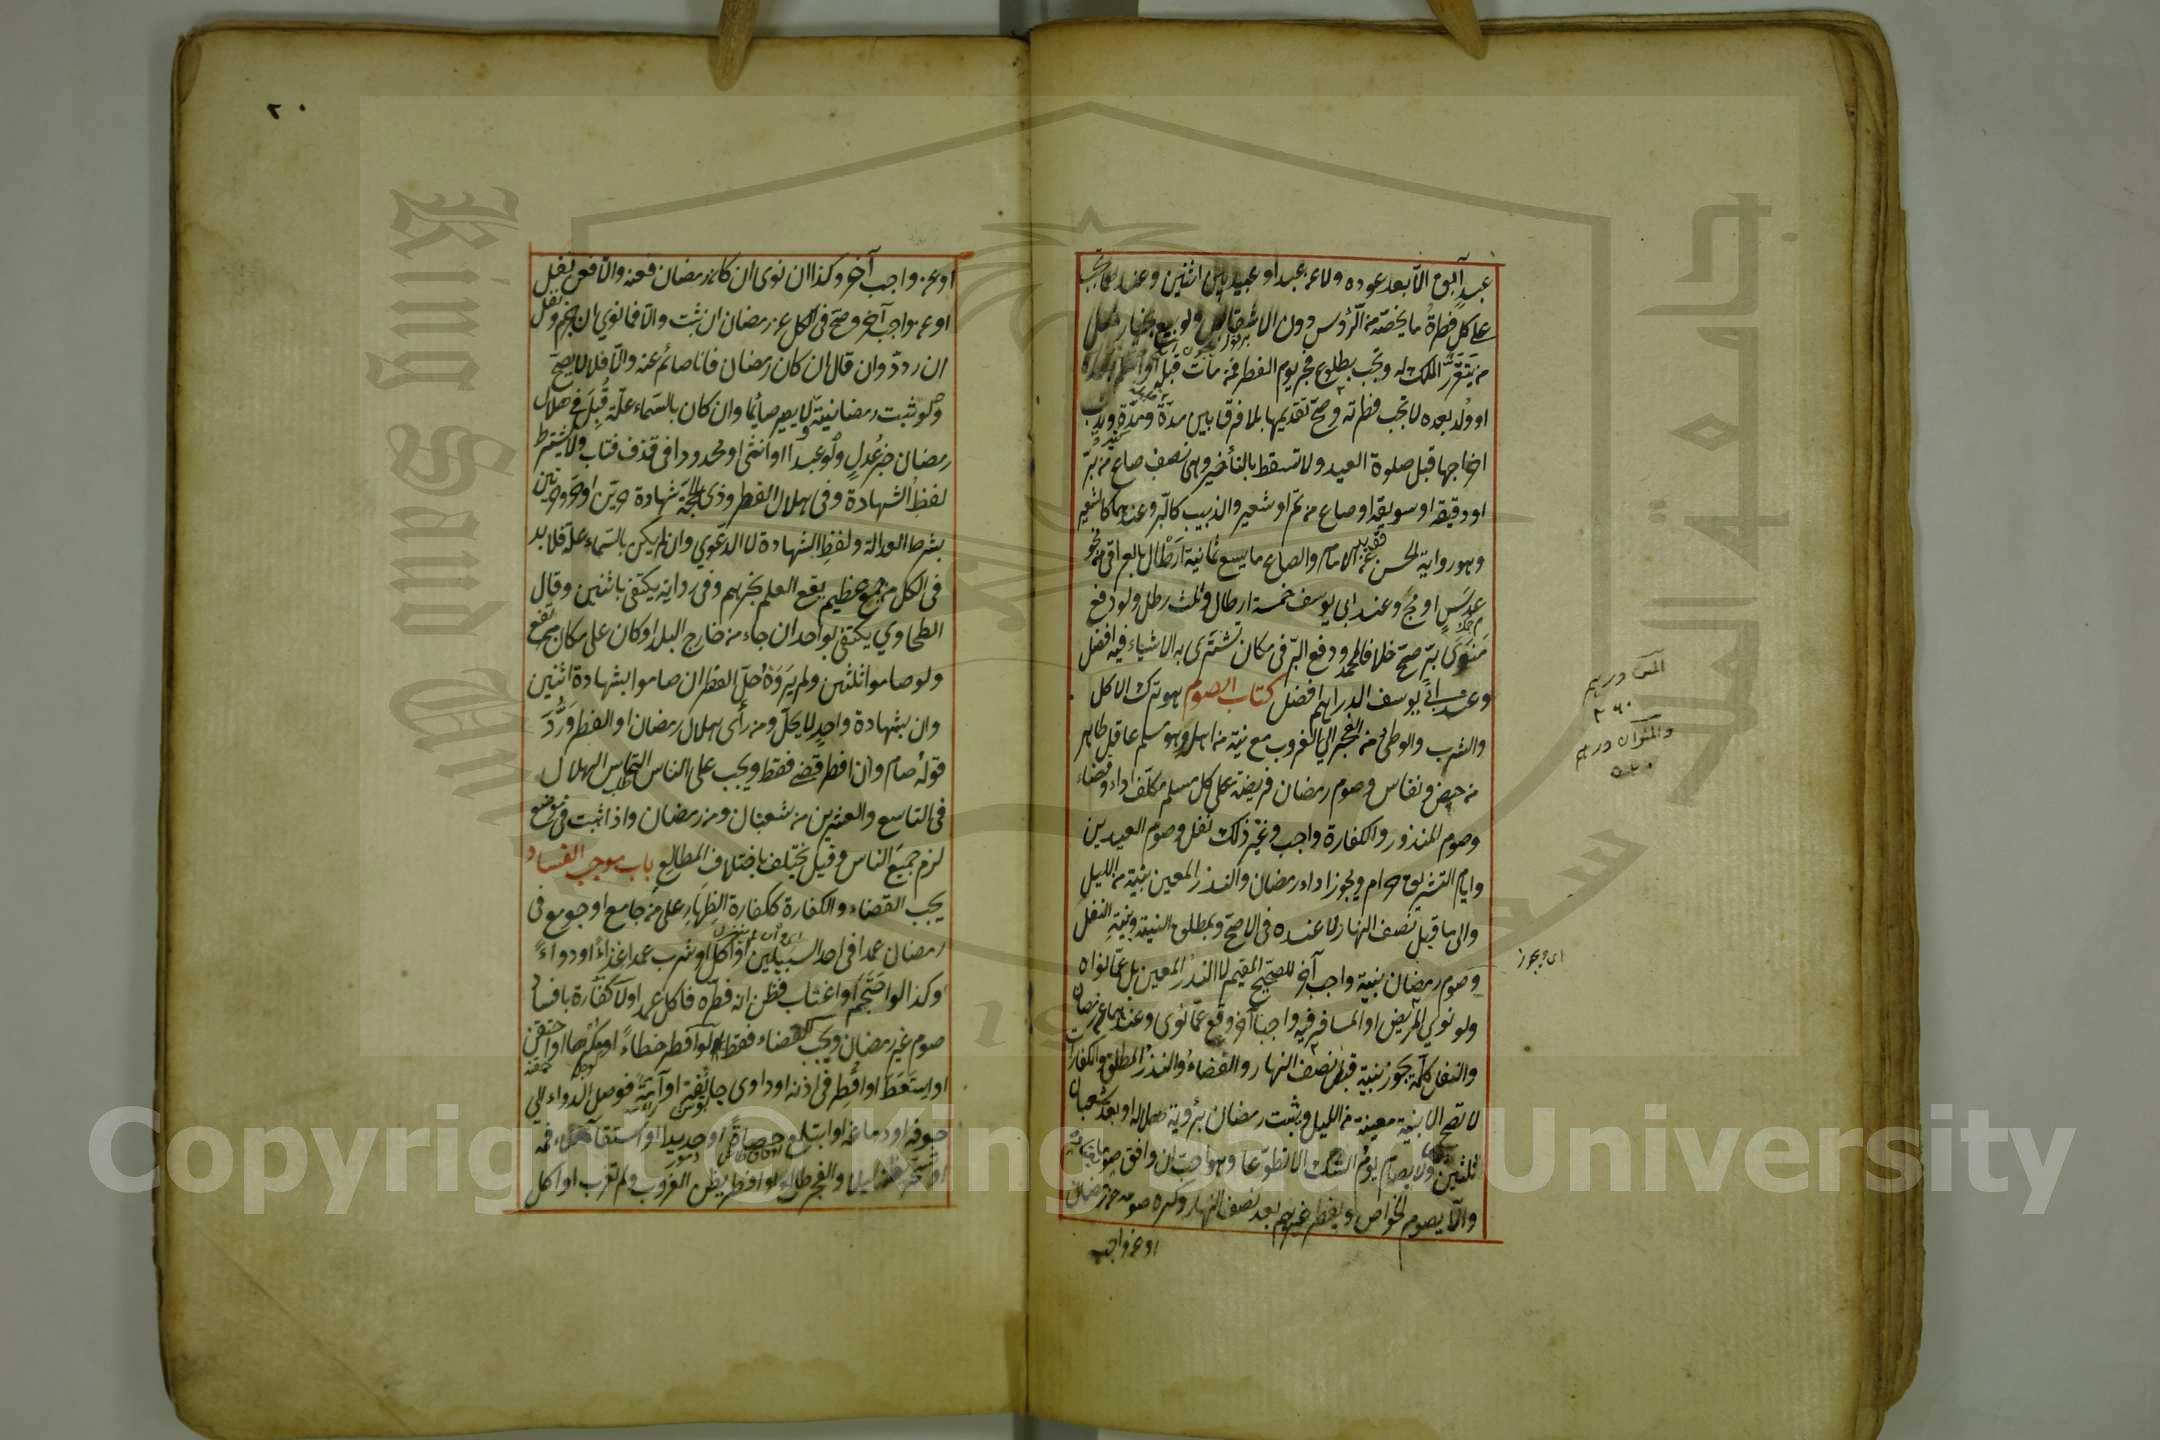 عبد آبق الا بعد عوده ولا عن عبد او عبيد بين اثنين وعندهما تجب
على كل فطرة ما يخصه من الرؤس دون الاشقاص ولو بيع بخيار فعلى
من يتقرر الملك له وتجب بطلوع فجر يوم الفطر فمن مات قبله او اسلم بعده
او ولد بعده لا تجب فطرته وصح تقديمها بلا فرق بين مدة ومدة وندب
اخراجها قبل صلوة العيد ولا تسقط بالتأخير وهى نصف صاع من بر
او دقيقه او سويقه او صاع من تمر او شعير والزبيب كالبر وعندهما كالشعير
وهو رواية الحسن عن الامام والصاع ما يسع ثمانية ارطال بالعراقى من نحو
عدس او مج وعند ابى يوسف خمسة ارطال وثلث رطل ولو دفع
منوى بر صح خلافا لمحمد ودفع البر فى مكان تشترى به الاشياء فيه افضل
وعند ابى يوسف الدراهم افضل كتاب الصوم هو ترك الاكل
والشرب والوطئ من الفجر الى الغروب مع نية من اهله وهو مسلم عاقل طاهر
من حيض ونفاس وصوم رمضان فريضة على كل مسلم مكلف اداء وقضاء
وصوم المنذور والكفارة واجب وغير ذلك نفل وصوم العيدين
وايام التشريق حرام ويجوز اداء رمضان والنذر المعين بنية من الليل
والى ما قبل نصف النهار لا عنده فى الاصح وبمطلق النية وبنية النفل
وصوم رمضان بنية واجب آخر للصحيح المقيم لا النذر المعين بل عما نواه
ولو نوى المريض او المسافر فيه واجبا آخر وقع عما نوى وعندهما عن رمضان
والنفل كله يجوز بنية قبل نصف النهار والقضاء والنذر المطلق والكفارات
لا تصح الا بنية معينة من الليل ويثبت رمضان برؤية هلاله او بعد شعبان
ثلثين ولا يصام يوم الشك الا تطوعا وهو احب ان وافق صوما يعتاده
والا يصوم الخواص ويفطر غيرهم بعد نصف النهار وكره صومه عن رمضان
او عن واجب
المن درهم
٢٦٠
والمنوان درهم
٥٢٠
اى ويجوز
٢٠
او عن واجب آخر وكذا ان نوى ان كان رمضان فعنه والا فعن نفل
او عن واجب آخر وصح فى الكل عن رمضان ان ثبت والا فما نوى ان جزم ونفل
ان ردد وان قال ان كان رمضان فانا صائم عنه والا فلا لا يصح
ولو ثبت رمضانيته لا يصير صائما وان كان بالسماء علة قبل فى هلال
رمضان خبر عدل ولو عبدا او انثى او محدودا فى قذف تاب ولا يشترط
لفظ الشهادة وفى هلال الفطر وذى الحجة شهادة حرين او حر وحرتين
بشرط العدالة ولفظ الشهادة لا الدعوى وان لم يكن بالسماء علة فلا بد
فى الكل من جمع عظيم يقع العلم بخبرهم وفى رواية يكتفى باثنين وقال
الطحاوى يكتفى بواحد ان جاء من خارج البلد او كان على مكان مرتفع
ولو صاموا ثلثين ولم يروه حل الفطر ان صاموا بشهادة اثنين
وان بشهادة واحد لا يحل ومن رأى هلال رمضان او الفطر ورد
قوله صام وان افطر قضى فقط ويجب على الناس التماس الهلال
فى التاسع والعشرين من شعبان ومن رمضان واذا ثبت فى موضع
لزم جميع الناس وقيل يختلف باختلاف المطالع باب موجب الفساد
يجب القضاء والكفارة ككفارة الظهار على من جامع او جومع فى
رمضان عمدا فى احد السبيلين او اكل او شرب عمدا غذاء او دواء
وكذا لو احتجم او اغتاب فظن انه فطره فاكل عمدا ولا كفارة بافساد
صوم غير رمضان ويجب القضاء فقط لو افطر خطاء او مكرها او احتقن
او استعط او اقطر فى اذنه او داوى جائفة او آمة فوصل الدواء الى
جوفه او دماغه او ابتلع حصاة او حديدا او استقاء ملء فمه
او تسحر يظنه ليلا والفجر طالع او افطر يظن الغروب ولم تغرب او اكل